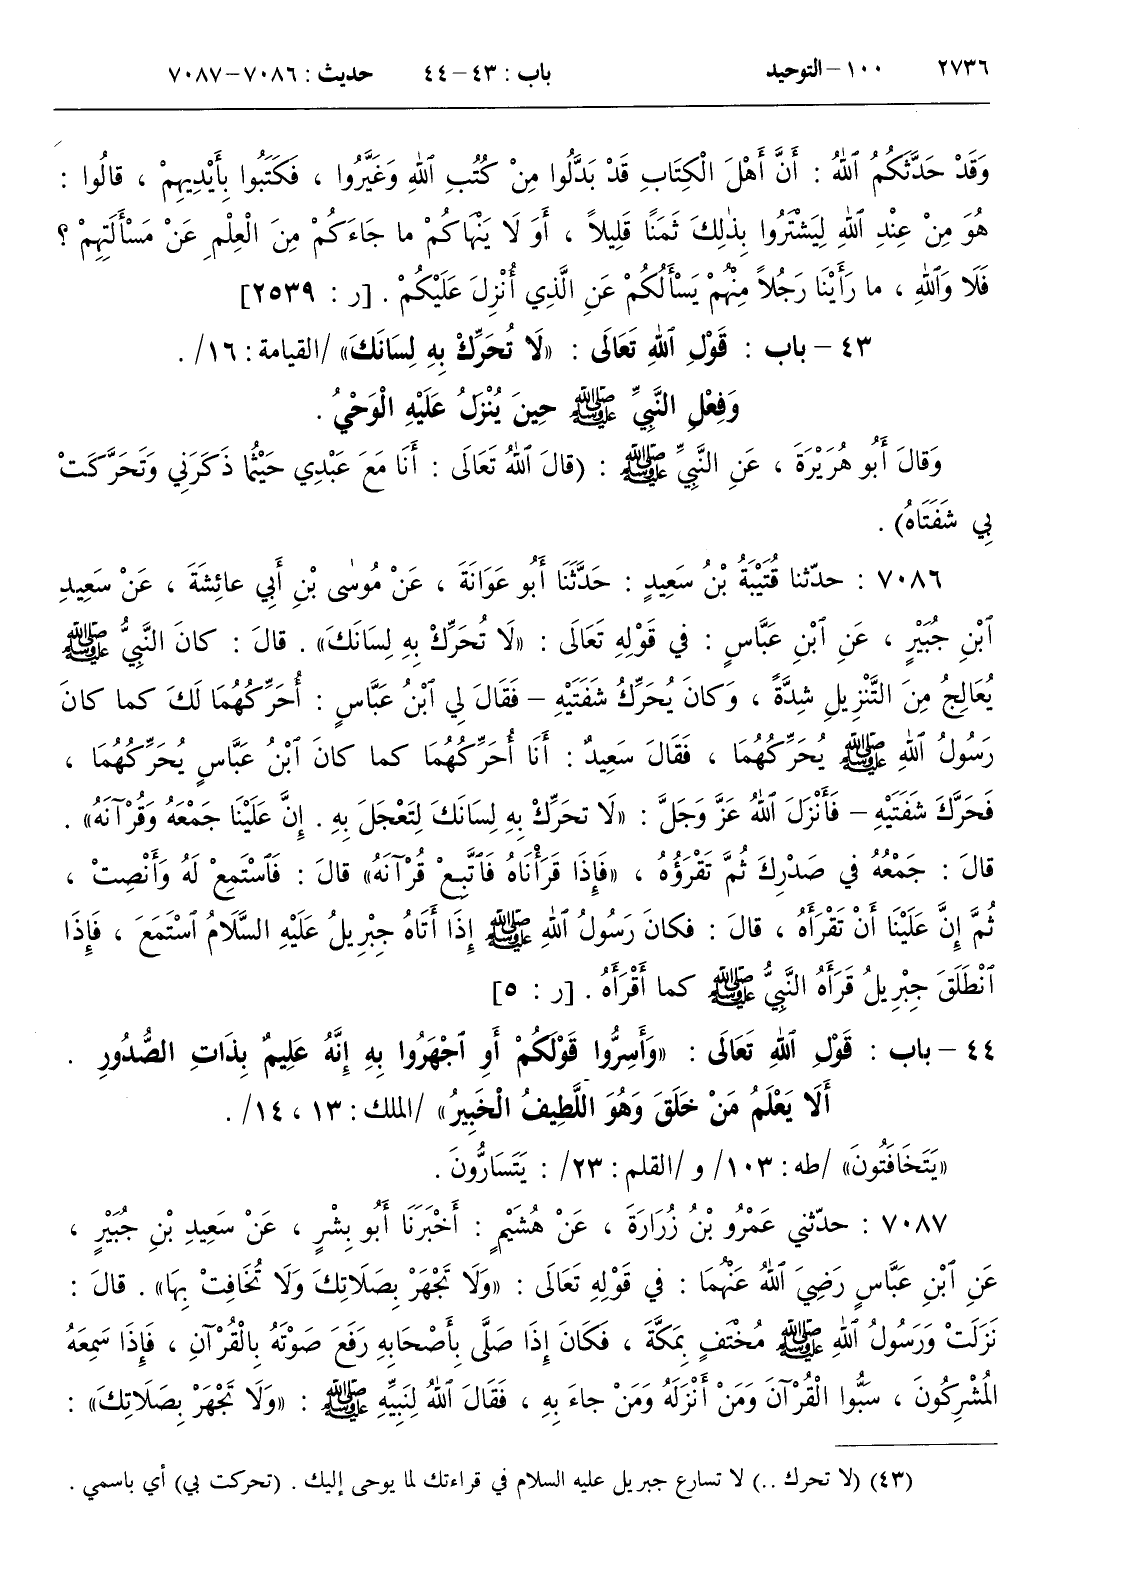 ٢٧٣٦ ١٠٠ – التوحيد باب : ٤٣ – ٤٤ حديث : ٧٠٨٦ – ٧٠٨٧
وَقَدْ حَدَّثَكُمُ ٱللهُ : أَنَّ أَهْلَ الْكِتَابِ قَدْ بَدَّلُوا مِنْ كُتُبِ ٱللهِ وَغَيَّرُوا ، فَكَتَبُوا بِأَيْدِيهِمْ ، قالُوا :
هُوَ مِنْ عِنْدِ ٱللهِ لِيَشْتَرُوا بِذٰلِكَ ثَمَنًا قَلِيلاً ، أَوَ لَا يَنْهَاكُمْ ما جَاءَكُمْ مِنَ الْعِلْمِ عَنْ مَسْأَلَتِهِمْ ؟
فَلَا وَٱللهِ ، ما رَأَيْنَا رَجُلاً مِنْهُمْ يَسْأَلُكُمْ عَنِ الَّذِي أُنْزِلَ عَلَيْكُمْ . [ر : ٢٥٣٩]
٤٣ – باب : قَوْلِ ٱللهِ تَعَالَى : «لَا تُحَرِّكْ بِهِ لِسَانَكَ» /القيامة : ١٦/ .
وَفِعْلِ النَّبِيِّ ﷺ حِينَ يُنْزَلُ عَلَيْهِ الْوَحْيُ .
وَقالَ أَبُو هُرَيْرَةَ ، عَنِ النَّبِيِّ ﷺ : (قالَ ٱللهُ تَعَالَى : أَنَا مَعَ عَبْدِي حَيْثُما ذَكَرَنِي وَتَحَرَّكَتْ
بِي شَفَتَاهُ) .
٧٠٨٦ : حدّثنا قُتَيْبَةُ بْنُ سَعِيدٍ : حَدَّثَنَا أَبُو عَوَانَةَ ، عَنْ مُوسٰى بْنِ أَبِي عائِشَةَ ، عَنْ سَعِيدِ
ٱبْنِ جُبَيْرٍ ، عَنِ ٱبْنِ عَبَّاسٍ : في قَوْلِهِ تَعَالَى : «لَا تُحَرِّكْ بِهِ لِسَانَكَ» . قالَ : كانَ النَّبِيُّ ﷺ
يُعَالِجُ مِنَ التَّنْزِيلِ شِدَّةً ، وَكانَ يُحَرِّكُ شَفَتَيْهِ – فَقَالَ لِي ٱبْنُ عَبَّاسٍ : أُحَرِّكُهُمَا لَكَ كما كانَ
رَسُولُ ٱللهِ ﷺ يُحَرِّكُهُمَا ، فَقَالَ سَعِيدٌ : أَنَا أُحَرِّكُهُمَا كما كانَ ٱبْنُ عَبَّاسٍ يُحَرِّكُهُمَا ،
فَحَرَّكَ شَفَتَيْهِ – فَأَنْزَلَ ٱللهُ عَزَّ وَجَلَّ : «لَا تُحَرِّكْ بِهِ لِسَانَكَ لِتَعْجَلَ بِهِ . إِنَّ عَلَيْنَا جَمْعَهُ وَقُرْآنَهُ» .
قالَ : جَمْعُهُ في صَدْرِكَ ثُمَّ تَقْرَؤُهُ ، «فَإِذَا قَرَأْنَاهُ فَٱتَّبِعْ قُرْآنَهُ» قالَ : فَٱسْتَمِعْ لَهُ وَأَنْصِتْ ،
ثُمَّ إِنَّ عَلَيْنَا أَنْ تَقْرَأَهُ ، قالَ : فكانَ رَسُولُ ٱللهِ ﷺ إِذَا أَتَاهُ جِبْرِيلُ عَلَيْهِ السَّلَامُ ٱسْتَمَعَ ، فَإِذَا
ٱنْطَلَقَ جِبْرِيلُ قَرَأَهُ النَّبِيُّ ﷺ كما أَقْرَأَهُ . [ر : ٥]
٤٤ – باب : قَوْلِ ٱللهِ تَعَالَى : «وَأَسِرُّوا قَوْلَكُمْ أَوِ ٱجْهَرُوا بِهِ إِنَّهُ عَلِيمٌ بِذَاتِ الصُّدُورِ .
أَلَا يَعْلَمُ مَنْ خَلَقَ وَهُوَ اللَّطِيفُ الْخَبِيرُ» /الملك : ١٣ ، ١٤/ .
«يَتَخَافَتُونَ» /طه : ١٠٣/ و /القلم : ٢٣/ : يَتَسَارُّونَ .
٧٠٨٧ : حدّثني عَمْرُو بْنُ زُرَارَةَ ، عَنْ هُشَيْمٍ : أَخْبَرَنَا أَبُو بِشْرٍ ، عَنْ سَعِيدِ بْنِ جُبَيْرٍ ،
عَنِ ٱبْنِ عَبَّاسٍ رَضِيَ ٱللهُ عَنْهُمَا : في قَوْلِهِ تَعَالَى : «وَلَا تَجْهَرْ بِصَلَاتِكَ وَلَا تُخَافِتْ بِهَا» . قالَ :
نَزَلَتْ وَرَسُولُ ٱللهِ ﷺ مُخْتَفٍ بِمَكَّةَ ، فَكَانَ إِذَا صَلَّى بِأَصْحَابِهِ رَفَعَ صَوْتَهُ بِالْقُرْآنِ ، فَإِذَا سَمِعَهُ
الْمُشْرِكُونَ ، سَبُّوا الْقُرْآنَ وَمَنْ أَنْزَلَهُ وَمَنْ جاءَ بِهِ ، فَقَالَ ٱللهُ لِنَبِيِّهِ ﷺ : «وَلَا تَجْهَرْ بِصَلَاتِكَ» :
(٤٣) (لا تحرك ..) لا تسارع جبريل عليه السلام في قراءتك لما يوحى إليك . (تحركت بي) أي باسمي .